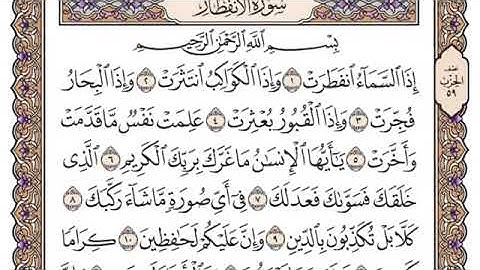 سُورَةُ الِانفِطَارِ
بِسْمِ اللَّهِ الرَّحْمَٰنِ الرَّحِيمِ
إِذَا السَّمَاءُ انفَطَرَتْ ١ وَإِذَا الْكَوَاكِبُ انتَثَرَتْ ٢ وَإِذَا الْبِحَارُ
فُجِّرَتْ ٣ وَإِذَا الْقُبُورُ بُعْثِرَتْ ٤ عَلِمَتْ نَفْسٌ مَّا قَدَّمَتْ
وَأَخَّرَتْ ٥ يَا أَيُّهَا الْإِنسَانُ مَا غَرَّكَ بِرَبِّكَ الْكَرِيمِ ٦ الَّذِي
خَلَقَكَ فَسَوَّاكَ فَعَدَلَكَ ٧ فِي أَيِّ صُورَةٍ مَّا شَاءَ رَكَّبَكَ ٨
كَلَّا بَلْ تُكَذِّبُونَ بِالدِّينِ ٩ وَإِنَّ عَلَيْكُمْ لَحَافِظِينَ ١٠ كِرَامًا
نصف
الحزب
٥٩